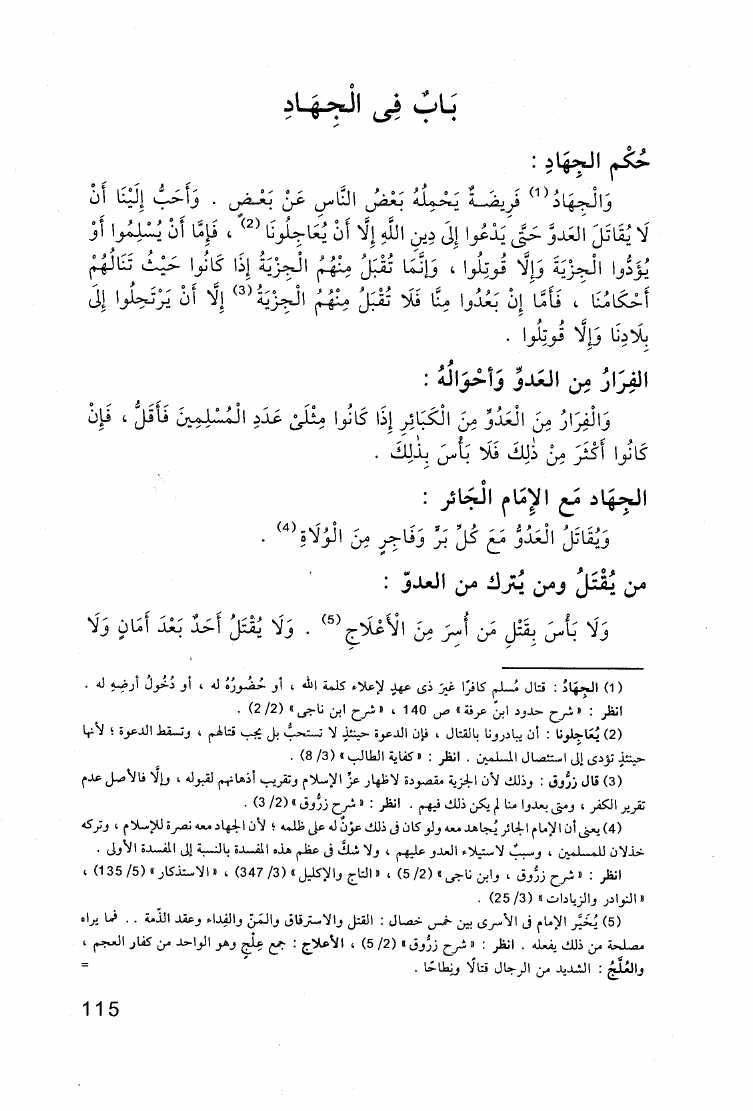 بَابٌ فِى الْجِهَادِ
حُكْم الجِهَادِ :
وَالْجِهَادُ(1) فَرِيضَةٌ يَحْمِلُهُ بَعْضُ النَّاسِ عَنْ بَعْضٍ . وَأَحَبُّ إِلَيْنَا أَنْ
لَا يُقَاتَلَ العَدوَّ حَتَّى يَدْعُوا إِلَى دِينِ اللَّهِ إِلَّا أَنْ يُعَاجِلُونَا(2) ، فَإِمَّا أَنْ يُسْلِمُوا أَوْ
يُؤَدُّوا الْجِزْيَةَ وَإِلَّا قُوتِلُوا ، وَإِنَّمَا تُقْبَلُ مِنْهُمُ الْجِزْيَةُ إِذَا كَانُوا حَيْثُ تَنَالُهُمْ
أَحْكَامُنَا ، فَأَمَّا إِنْ بَعُدُوا مِنَّا فَلَا تُقْبَلُ مِنْهُمُ الْجِزْيَةُ(3) إِلَّا أَنْ يَرْتَحِلُوا إِلَى
بِلَادِنَا وَإِلَّا قُوتِلُوا .
الفِرَارُ مِن العَدوِّ وَأَحْوَالُهُ :
وَالْفِرَارُ مِنَ الْعَدُوِّ مِنَ الْكَبَائِرِ إِذَا كَانُوا مِثْلَىْ عَدَدِ الْمُسْلِمِينَ فَأَقَلُّ ، فَإِنْ
كَانُوا أَكْثَرَ مِنْ ذَٰلِكَ فَلَا بَأْسَ بِذَٰلِكَ .
الجِهَاد مَع الإِمَامِ الْجَائر :
وَيُقَاتَلُ الْعَدُوُّ مَعَ كُلِّ بَرٍّ وَفَاجِرٍ مِنَ الْوُلَاةِ(4) .
من يُقْتَلُ ومن يُترك من العدوّ :
وَلَا بَأْسَ بِقَتْلِ مَن أُسِرَ مِنَ الْأَعْلَاجِ(5) . وَلَا يُقْتَلُ أَحَدٌ بَعْدَ أَمَانٍ وَلَا
(1) الجِهَادُ : قتال مُسلمٍ كافرًا غيرَ ذى عهدٍ لإعلاء كلمة الله ، أو حُضُورُهُ له ، أو دُخُولُ أرضِهِ له .
انظر : «شرح حدود ابن عرفة» ص 140 ، «شرح ابن ناجى» (2/ 2) .
(2) يُعَاجِلونا : أن يبادرونا بالقتال ، فإن الدعوة حينئذٍ لا تستحبُّ بل يجب قتالهم ، وتسقط الدعوة ؛ لأنها
حينئذٍ تؤدى إلى استئصال المسلمين . انظر : «كفاية الطالب» (3/ 8) .
(3) قال زرُّوق : وذلك لأن الجزية مقصودة لاظهار عزِّ الإسلام وتقريب أذهانهم لقبوله ، وإلَّا فالأصل عدم
تقرير الكفر ، ومتى بعدوا منا لم يكن ذلك فيهم . انظر : «شرح زرُّوق» (2/ 3) .
(4) يعنى أن الإمام الجائر يُجاهد معه ولو كان فى ذلك عوْنٌ له على ظلمه ؛ لأن الجهاد معه نصرة للإسلام ، وتركه
خذلان للمسلمين ، وسببٌ لاستيلاء العدو عليهم ، ولا شكَّ فى عظم هذه المفسدة بالنسبة إلى المفسدة الأولى .
انظر : «شرح زرُّوق ، وابن ناجى» (2/ 5) ، «التاج والإكليل» (3/ 347) ، «الاستذكار» (5/ 135) ،
«النوادر والزيادات» (3/ 25) .
(5) يُخيَّر الإمام فى الأسرى بين خمس خصال : القتل والاسترقاق والمَنّ والفِداء وعقد الذِّمة .. فما يراه
مصلحة من ذلك يفعله . انظر : «شرح زرُّوق» (2/ 5) ، الأعلاج : جمع عِلْجٍ وهو الواحد من كفار العجم ،
والعُلَّجُ : الشديد من الرجال قتالًا ونِطاحًا . =
115